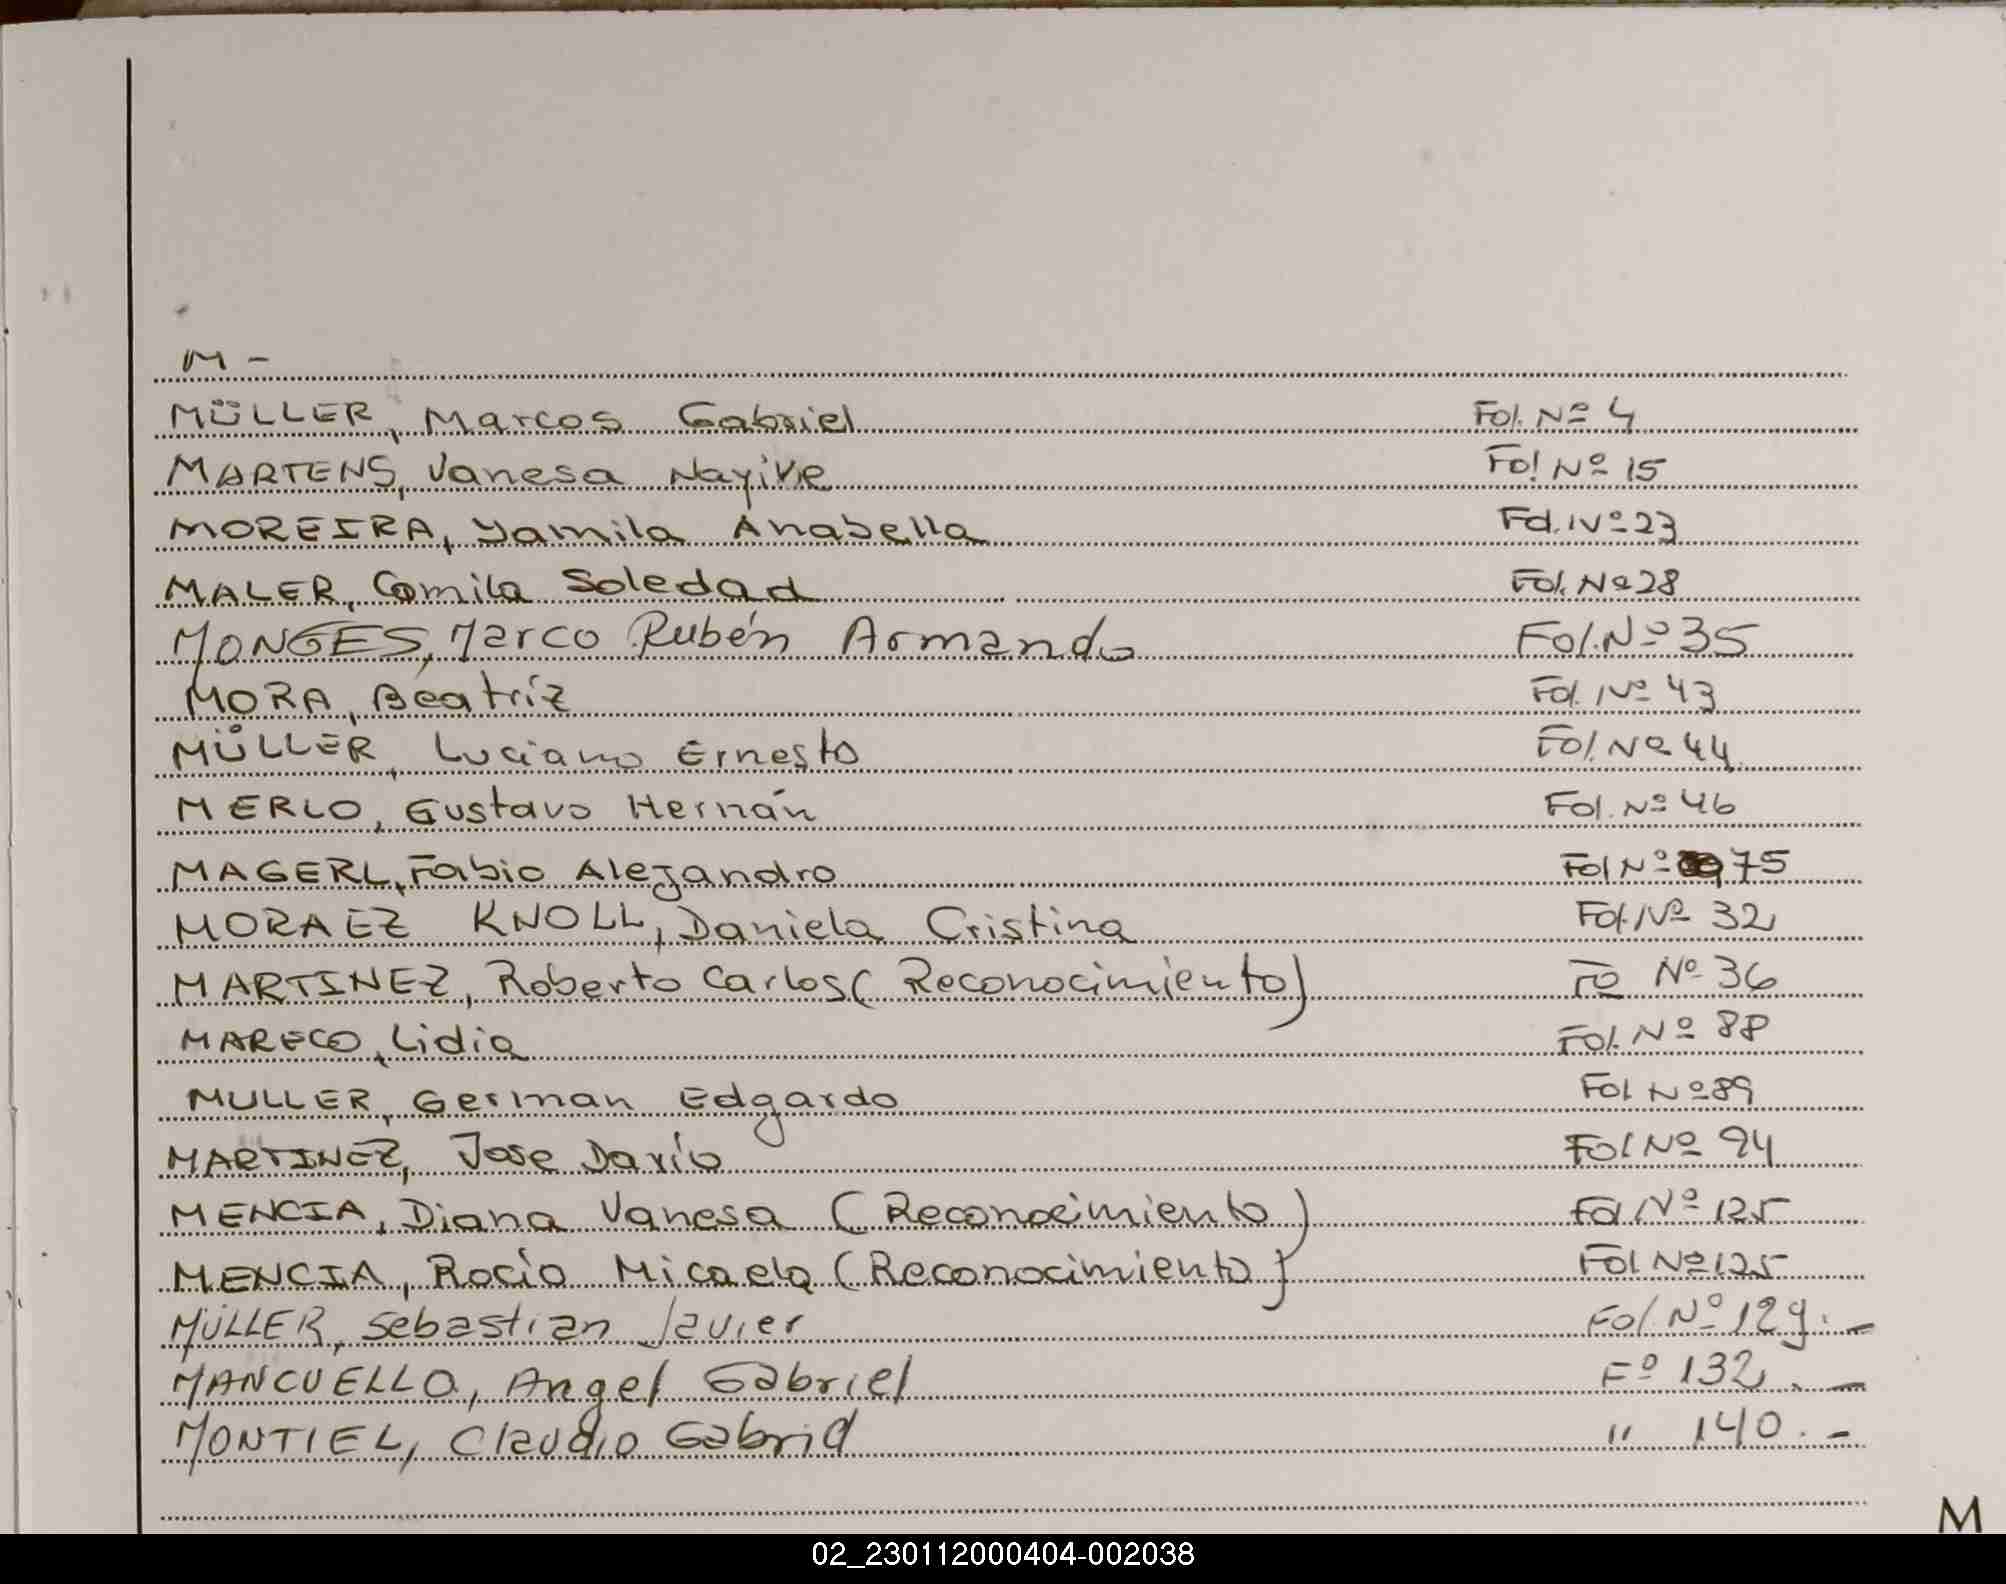 M -
MÜLLER, Marcos Gabriel Fol. Nº 4
MARTENS, Vanesa Nayive Fol Nº 15
MOREIRA, Yamila Anabella Fol. Nº 23
MALER, Camila Soledad Fol. Nº 28
MONGES, Marco Rubén Armando Fol. Nº 35
MORA, Beatríz Fol. Nº 43
MÜLLER, Luciano Ernesto Fol. Nº 44
MERLO, Gustavo Hernán Fol. Nº 46
MAGERL, Fabio Alejandro Fol Nº 75
MORAEZ KNOLL, Daniela Cristina Fol. Nº 32
MARTINEZ, Roberto Carlos (Reconocimiento) Fº Nº 36
MARECO, Lidia Fol. Nº 88
MULLER, German Edgardo Fol Nº 89
MARTINEZ, Jose Darío Fol Nº 94
MENCIA, Diana Vanesa (Reconocimiento) Fol Nº 125
MENCIA, Rocío Micaela (Reconocimiento) Fol Nº 125
MÜLLER, Sebastian Javier Fol. Nº 129. -
MANCUELLO, Angel Gabriel Fº 132. -
MONTIEL, Claudio Gabriel " 140. -
M
02_230112000404-002038